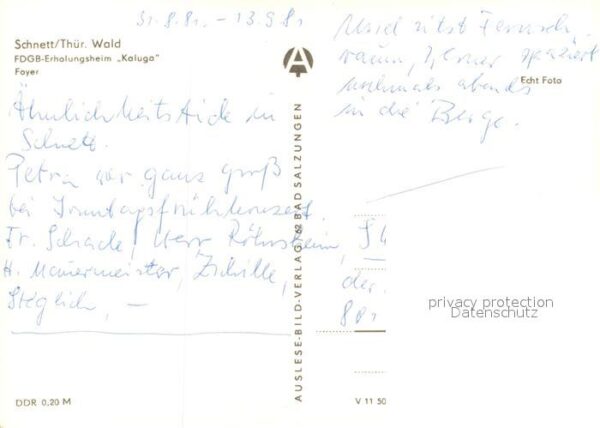 31.8.81. - 13.9.81
Schnett/Thür. Wald
FDGB-Erholungsheim „Kaluga"
Foyer
Ähnlichkeits in
Schnett.
Petra war ganz groß
bei
Fr. Schade, Herr Röhnstein,
H. Mauermeister, Zschille,
Steglich, —
DDR 0,20 M
AUSLESE-BILD-VERLAG · 62 BAD SALZUNGEN
A
sitzt Fernseh
raum, spaziert
nochmals abends
in die Berge.
Echt Foto
der
privacy protection
Datenschutz
V 11 50